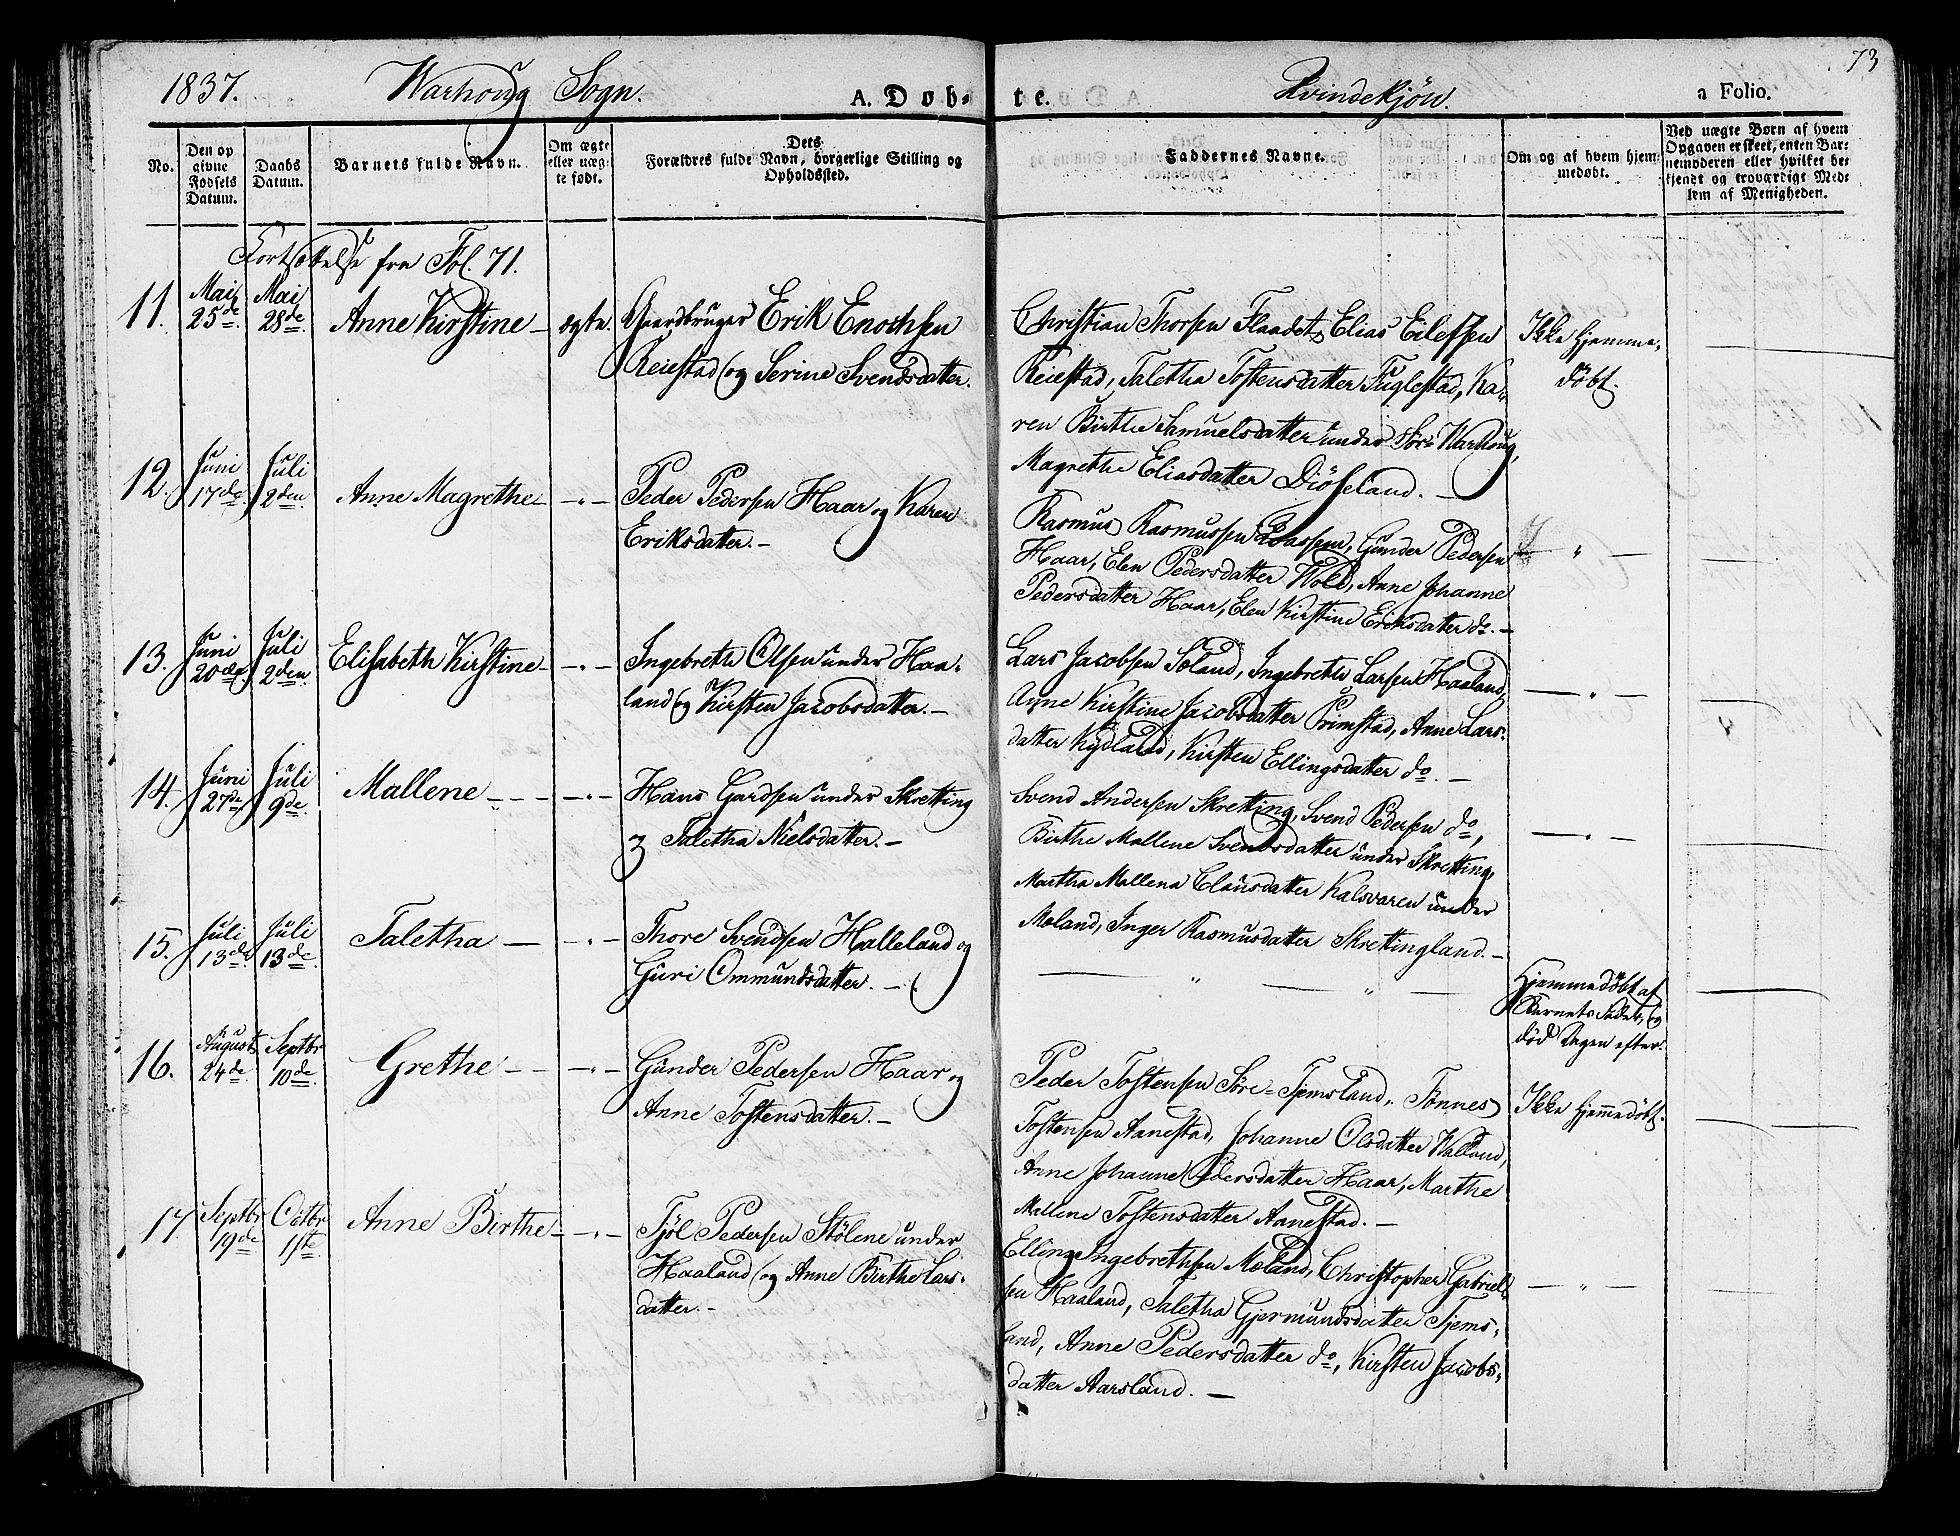 1837. Warhoug Sogn. A. Døb- te. Kvindekjön. a Folio. 73
No.
Den op givne Fødsels Datum.
Daabs Datum.
Barnets fulde Navn.
Om ægte eller uæg- te født.
Dets Forældres fulde Navn, borgerlige Stilling og Opholdssted.
Faddernes Navne.
Om og af hvem hjem- medøbt.
Ved uægte Børn af hvem Opgaven er skeet, enten Bar- nemoderen eller hvilket be- kjendt og troværdigt Med- lem af Menigheden.
Fortsættelse fra Fol. 71.
11. Mai 25de. Mai 28de. Anne Kirstine – ægte. Gaardbruger Erik Enochsen
Reiestad og Serine Svendsdatter.
Christian Thorsen Flaadet, Elias Eilefsen
Reiestad, Taletha Tostensdatter Fuglestad, Ka-
ren Birthe Samuelsdatter under Søre Warhoug,
Magrethe Eliasdatter Diöseland. –
Ikke hjemme-
döbt.
12. Juni 17de Juli 2den Anne Magrethe – " – Peder Pedersen Haar og Karen
Eriksdatter. –
Rasmus Rasmussen Aassen, Gunder Pedersen
Haar, Elen Pedersdatter Wold, Anne Johanne
Pedersdatter Haar, Elen Kirstine Eriksdatter do. –
– " –
13. Juni 20de. Juli 2den. Elisabeth Kirstine – " – Ingebreth Olsen under Haa-
land og Kirsten Jacobsdatter. –
Lars Jacobsen Söland, Ingebreth Larsen Haaland,
Anne Kirstine Jacobsdatter Primstad, Anne Lars-
datter Kydland, Kirsten Ellingsdatter do. –
– " –
14. Juni 27de Juli 9de. Mallene – " – Hans Gardsen under Skretting
og Taletha Nielsdatter. –
Svend Andersen Skretting, Svend Pedersen do,
Birthe Mallene Svendsdatter under Skretting,
Martha Mallena Clausdatter Kalsvaren under
Moland, Inger Rasmusdatter Skrettingland. –
– " –
15. Juli 13de. Juli 13de. Taletha – " – Thore Svendsen Halleland og
Guri Ommundsdatter. –
– " – " –
Hjemmedöbt af
Barnets Fader, og
död Dagen efter.
16. August 24de. Septbr 10de. Grethe – " – Gunder Pedersen Haar og
Anne Tostensdatter. –
Peder Tostensen Söre-Tjemsland, Tönnes
Tostensen Aanestad, Johanne Olsdatter Walland,
Anne Johanne Pedersdatter Haar, Marthe
Mallene Tostensdatter Aanestad. –
Ikke hjemmedöbt.
17. Septbr 19de Octbr 1ste Anne Birthe – " – Tjöl Pedersen Stölene under
Haaland og Anne Birthe Lars-
datter. –
Elling Ingebrethsen Moland, Christopher Gabriel-
sen Haaland, Taletha Gjermundsdatter Tjems-
land, Anne Pedersdatter do, Kirsten Jacobs-
datter Aarsland. –
– " –